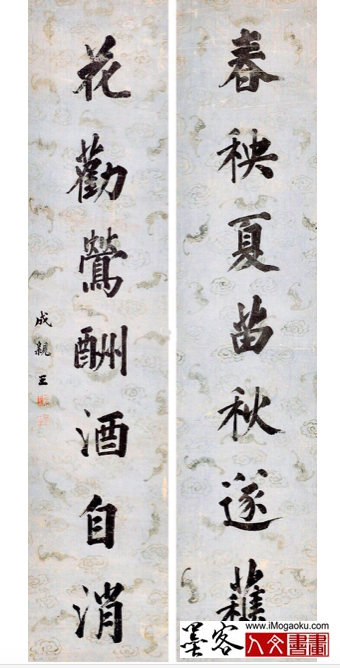 春秧夏苗秋遂
花勸鶯酬酒自消
成親王
墨客
www.iMogaoku.com
人文書畫